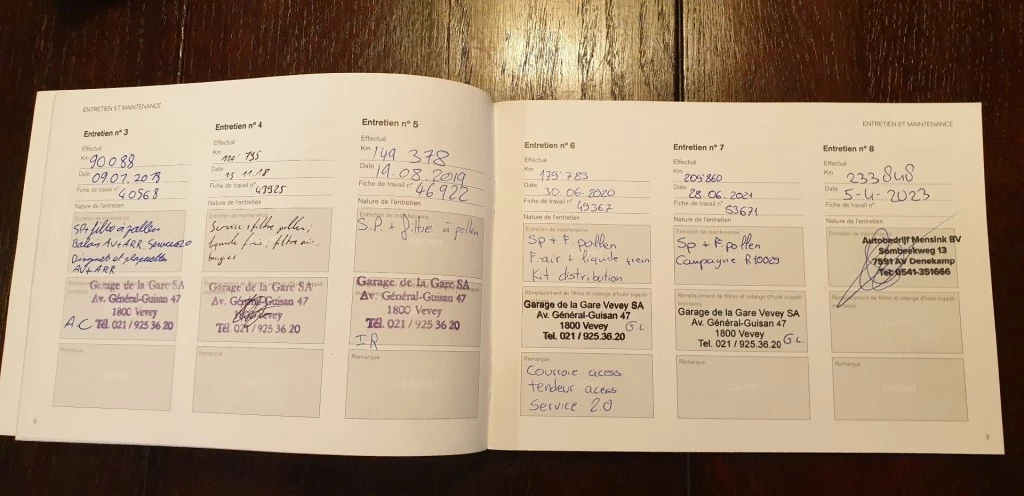 ENTRETIEN ET MAINTENANCE
Entretien n° 3
Effectué
Km 90088
Date 09.07.2018
Fiche de travail n° 40568
Nature de l'entretien
Entretien de maintenance
SP+ filtre à pollen
Balais AV+ARR. Service 2.0
Disques et plaquettes
AV+ARR
Garage de la Gare SA
Av. Général-Guisan 47
1800 Vevey
Tél. 021 / 925 36 20
A.C
Remarque
Entretien n° 4
Effectué
Km 120.795
Date 15.11.18
Fiche de travail n° 43925
Nature de l'entretien
Entretien de maintenance
Service; filtre pollen;
liquide frein; filtre air.
bougies
Garage de la Gare SA
Av. Général-Guisan 47
1800 Vevey
Tél. 021 / 925 36 20
Remarque
Entretien n° 5
Effectué
Km 149 378
Date 19.08.2019
Fiche de travail n° 46922
Nature de l'entretien
Entretien de maintenance
S.P. + filtre à pollen
Garage de la Gare SA
Av. Général-Guisan 47
1800 Vevey
Tél. 021 / 925 36 20
IR
Remarque
CACHET
8
ENTRETIEN ET MAINTENANCE
Entretien n° 6
Effectué
Km 179.783
Date 30.06.2020
Fiche de travail n° 49367
Nature de l'entretien
Entretien de maintenance
Sp + F. pollen
F.air + liquide frein
Kit distribution
Remplacement de filtres et vidange d'huile supplé-
Garage de la Gare Vevey SA
Av. Général-Guisan 47
1800 Vevey G.L.
Tel. 021 / 925.36.20
Remarque
Courroie acess
tendeur acess
Service 2.0
Entretien n° 7
Effectué
Km 209'860
Date 28.06.2021
Fiche de travail n° 53671
Nature de l'entretien
Entretien de maintenance
Sp + F. pollen
Campagne R10029
Remplacement de filtres et vidange d'huile supplé-
mentaires
Garage de la Gare Vevey SA
Av. Général-Guisan 47
1800 Vevey
Tel. 021 / 925.36.20 G.L.
Remarque
CACHET
Entretien n° 8
Effectué
Km 233848
Date 5-4-2023
Fiche de travail n°
Nature de l'entretien
Entretien de maintenance
Autobedrijf Mensink BV
Sombeekweg 13
7591 AV Denekamp
Tel: 0541-351666
Remplacement de filtres et vidange d'huile supplé-
mentaires
Remarque
9